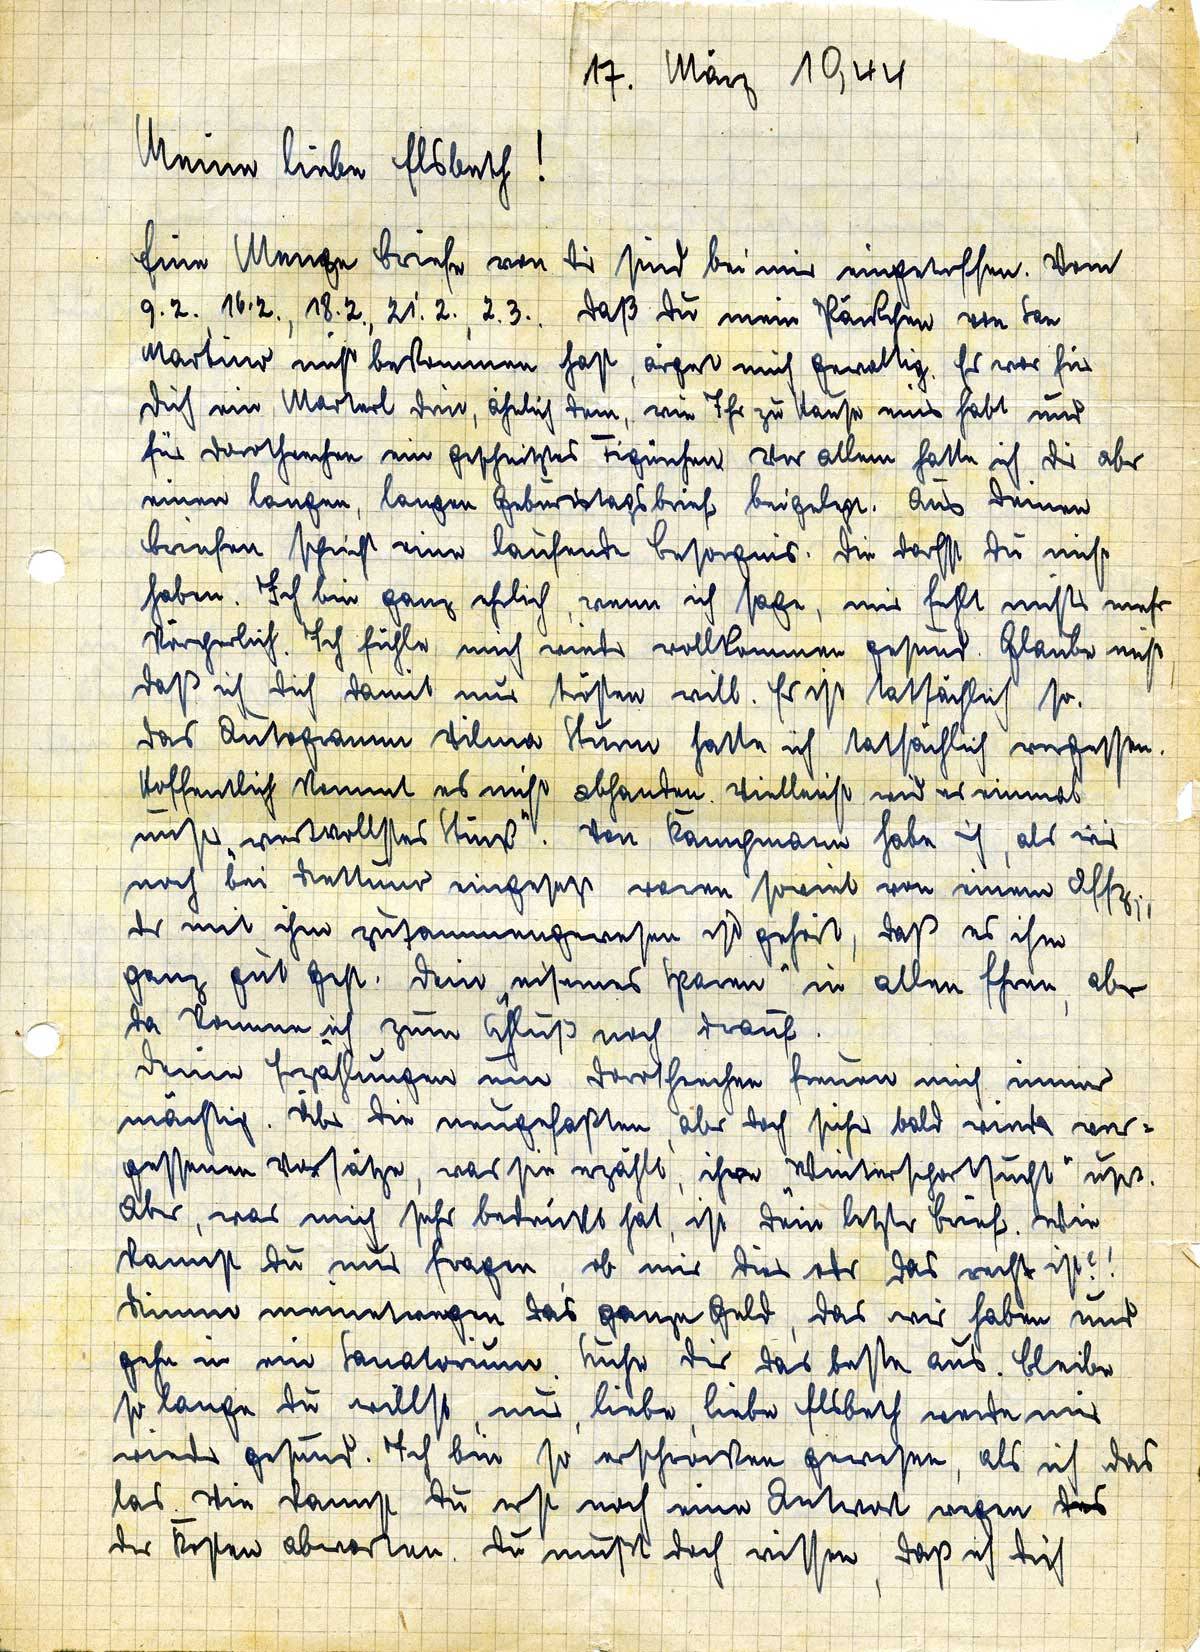 17. März 1944
Meine liebe Elsbeth!
Eine Menge Briefe von Dir sind bei mir eingetroffen. Vom
9.2., 16.2., 18.2., 21.2., 2.3.. Daß Du mein Päckchen von San
Martino nicht bekommen hast, ärgert mich gewaltig. Es war für
Dich ein Marterl drin, ähnlich dem, wie Ihr zu Hause eins habt und
für Dorotheechen ein geschnitztes Figürchen. Vor allem hatte ich Dir aber
einen langen, langen Geburtstagsbrief beigelegt. Aus Deinen
Briefen spricht eine laufende Besorgnis. Die darfst Du nicht
haben. Ich bin ganz ehrlich, wenn ich sage, mir fehlt nichts mehr
körperlich. Ich fühle mich wieder vollkommen gesund. Glaube nicht,
daß ich Dich damit nur trösten will. Es ist tatsächlich so.
Das Autogramm Vilma Sturm hatte ich tatsächlich vergessen.
Hoffentlich kommt es nicht abhanden. Vielleicht wird es einmal
unser „wertvollstes Stück". Von Kampmann habe ich, als wir
noch bei Nettuno eingesetzt waren soviel von einem Offz.,
der mit ihm zusammengewesen ist gehört, daß es ihm
ganz gut geht. Dein „eisernes Sparen" in allen Ehren, aber
da komme ich zum Schluß noch drauf.
Deine Erzählungen um Dorotheechen freuen mich immer
mächtig. Über die neugefaßten, aber doch sicher bald wieder ver=
gessenen Vorsätze, was sie erzählt, ihre „Wintersportsucht" usw.
Aber, was mich sehr bedrückt hat, ist Dein letzter Brief. Wie
kannst Du nur fragen, ob mir dies oder das recht ist?!
Nimm meinetwegen das ganze Geld, das wir haben und
gehe in ein Sanatorium. Suche Dir das beste aus. Bleibe
so lange Du willst, nur, liebe, liebe Elsbeth werde mir
wieder gesund. Ich bin so erschrocken gewesen, als ich das
las. Wie kannst Du erst noch eine Antwort wegen
der Kosten abwarten. Du mußt doch wissen, daß ich Dich